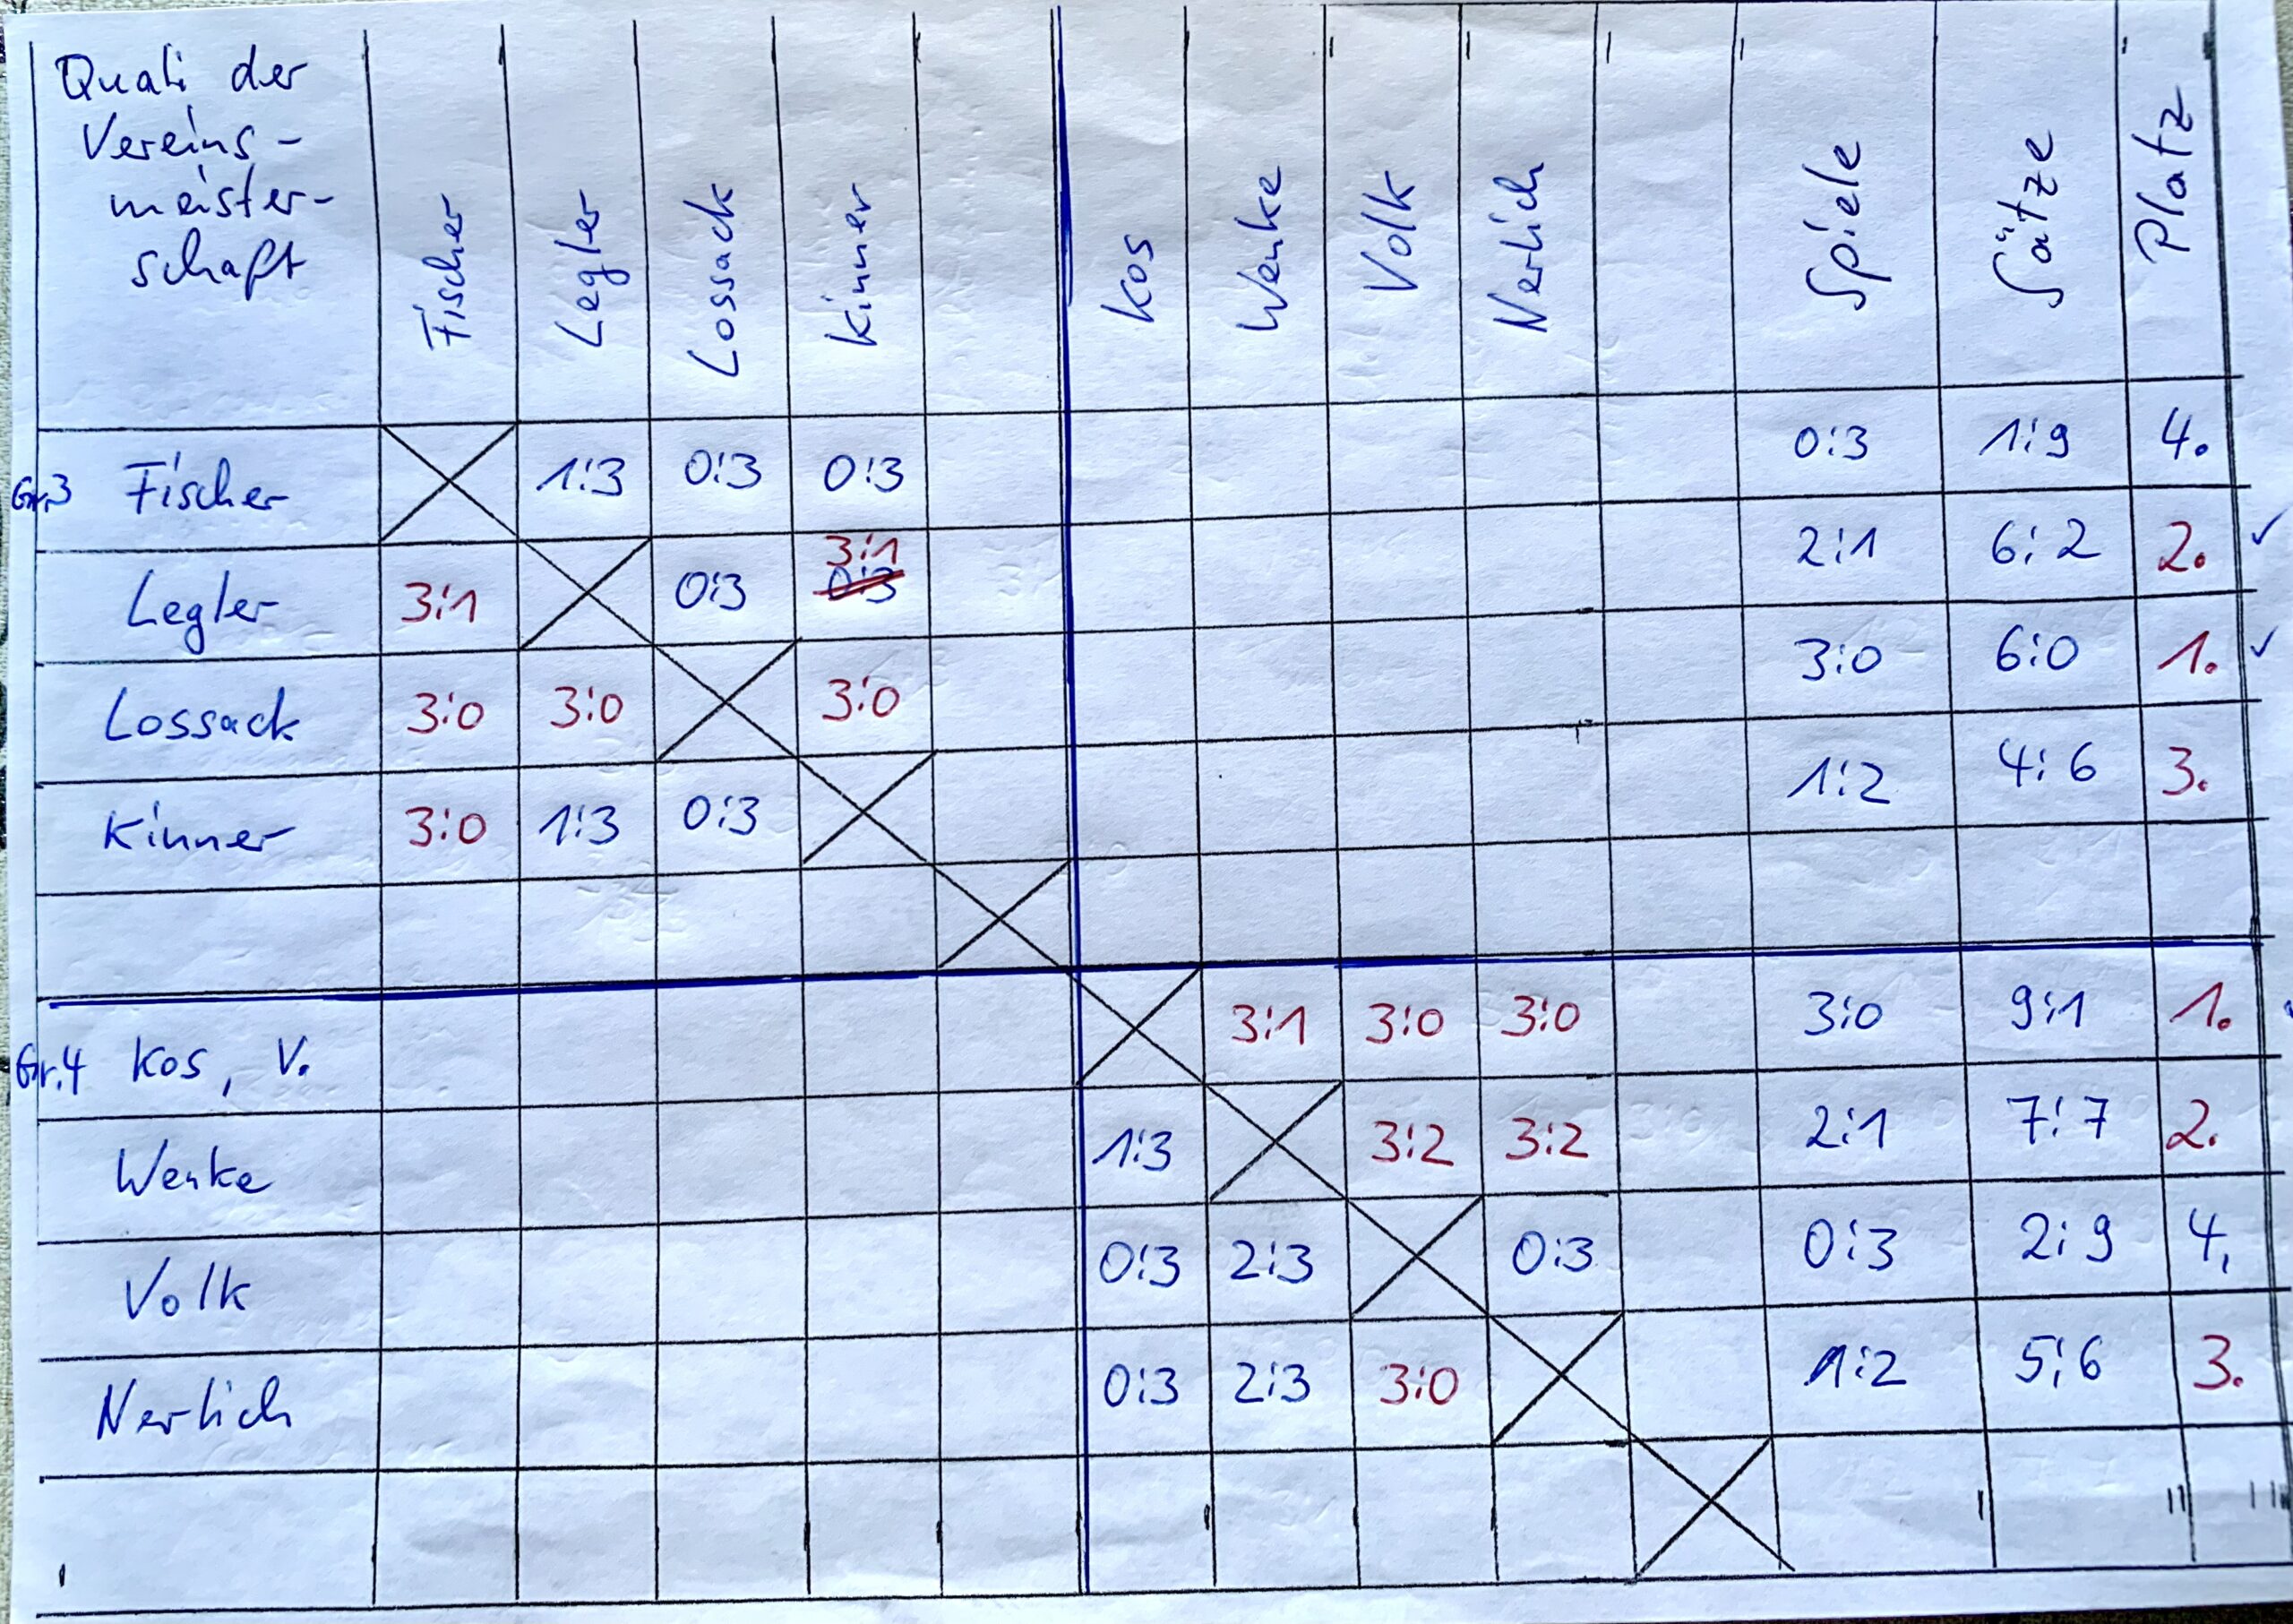 Quali der
Vereins-
meister-
schaft
Fischer Legler Lossack Kinner Kos Wenke Volk Nerlich Spiele Sätze Platz
Gr.3 Fischer 1:3 0:3 0:3 0:3 1:9 4.
Legler 3:1 0:3 3:1 0:3 2:1 6:2 2. ✓
Lossack 3:0 3:0 3:0 3:0 6:0 1. ✓
Kinner 3:0 1:3 0:3 1:2 4:6 3.
Gr.4 Kos, V. 3:1 3:0 3:0 3:0 9:1 1.
Wenke 1:3 3:2 3:2 2:1 7:7 2.
Volk 0:3 2:3 0:3 0:3 2:9 4.
Nerlich 0:3 2:3 3:0 1:2 5:6 3.